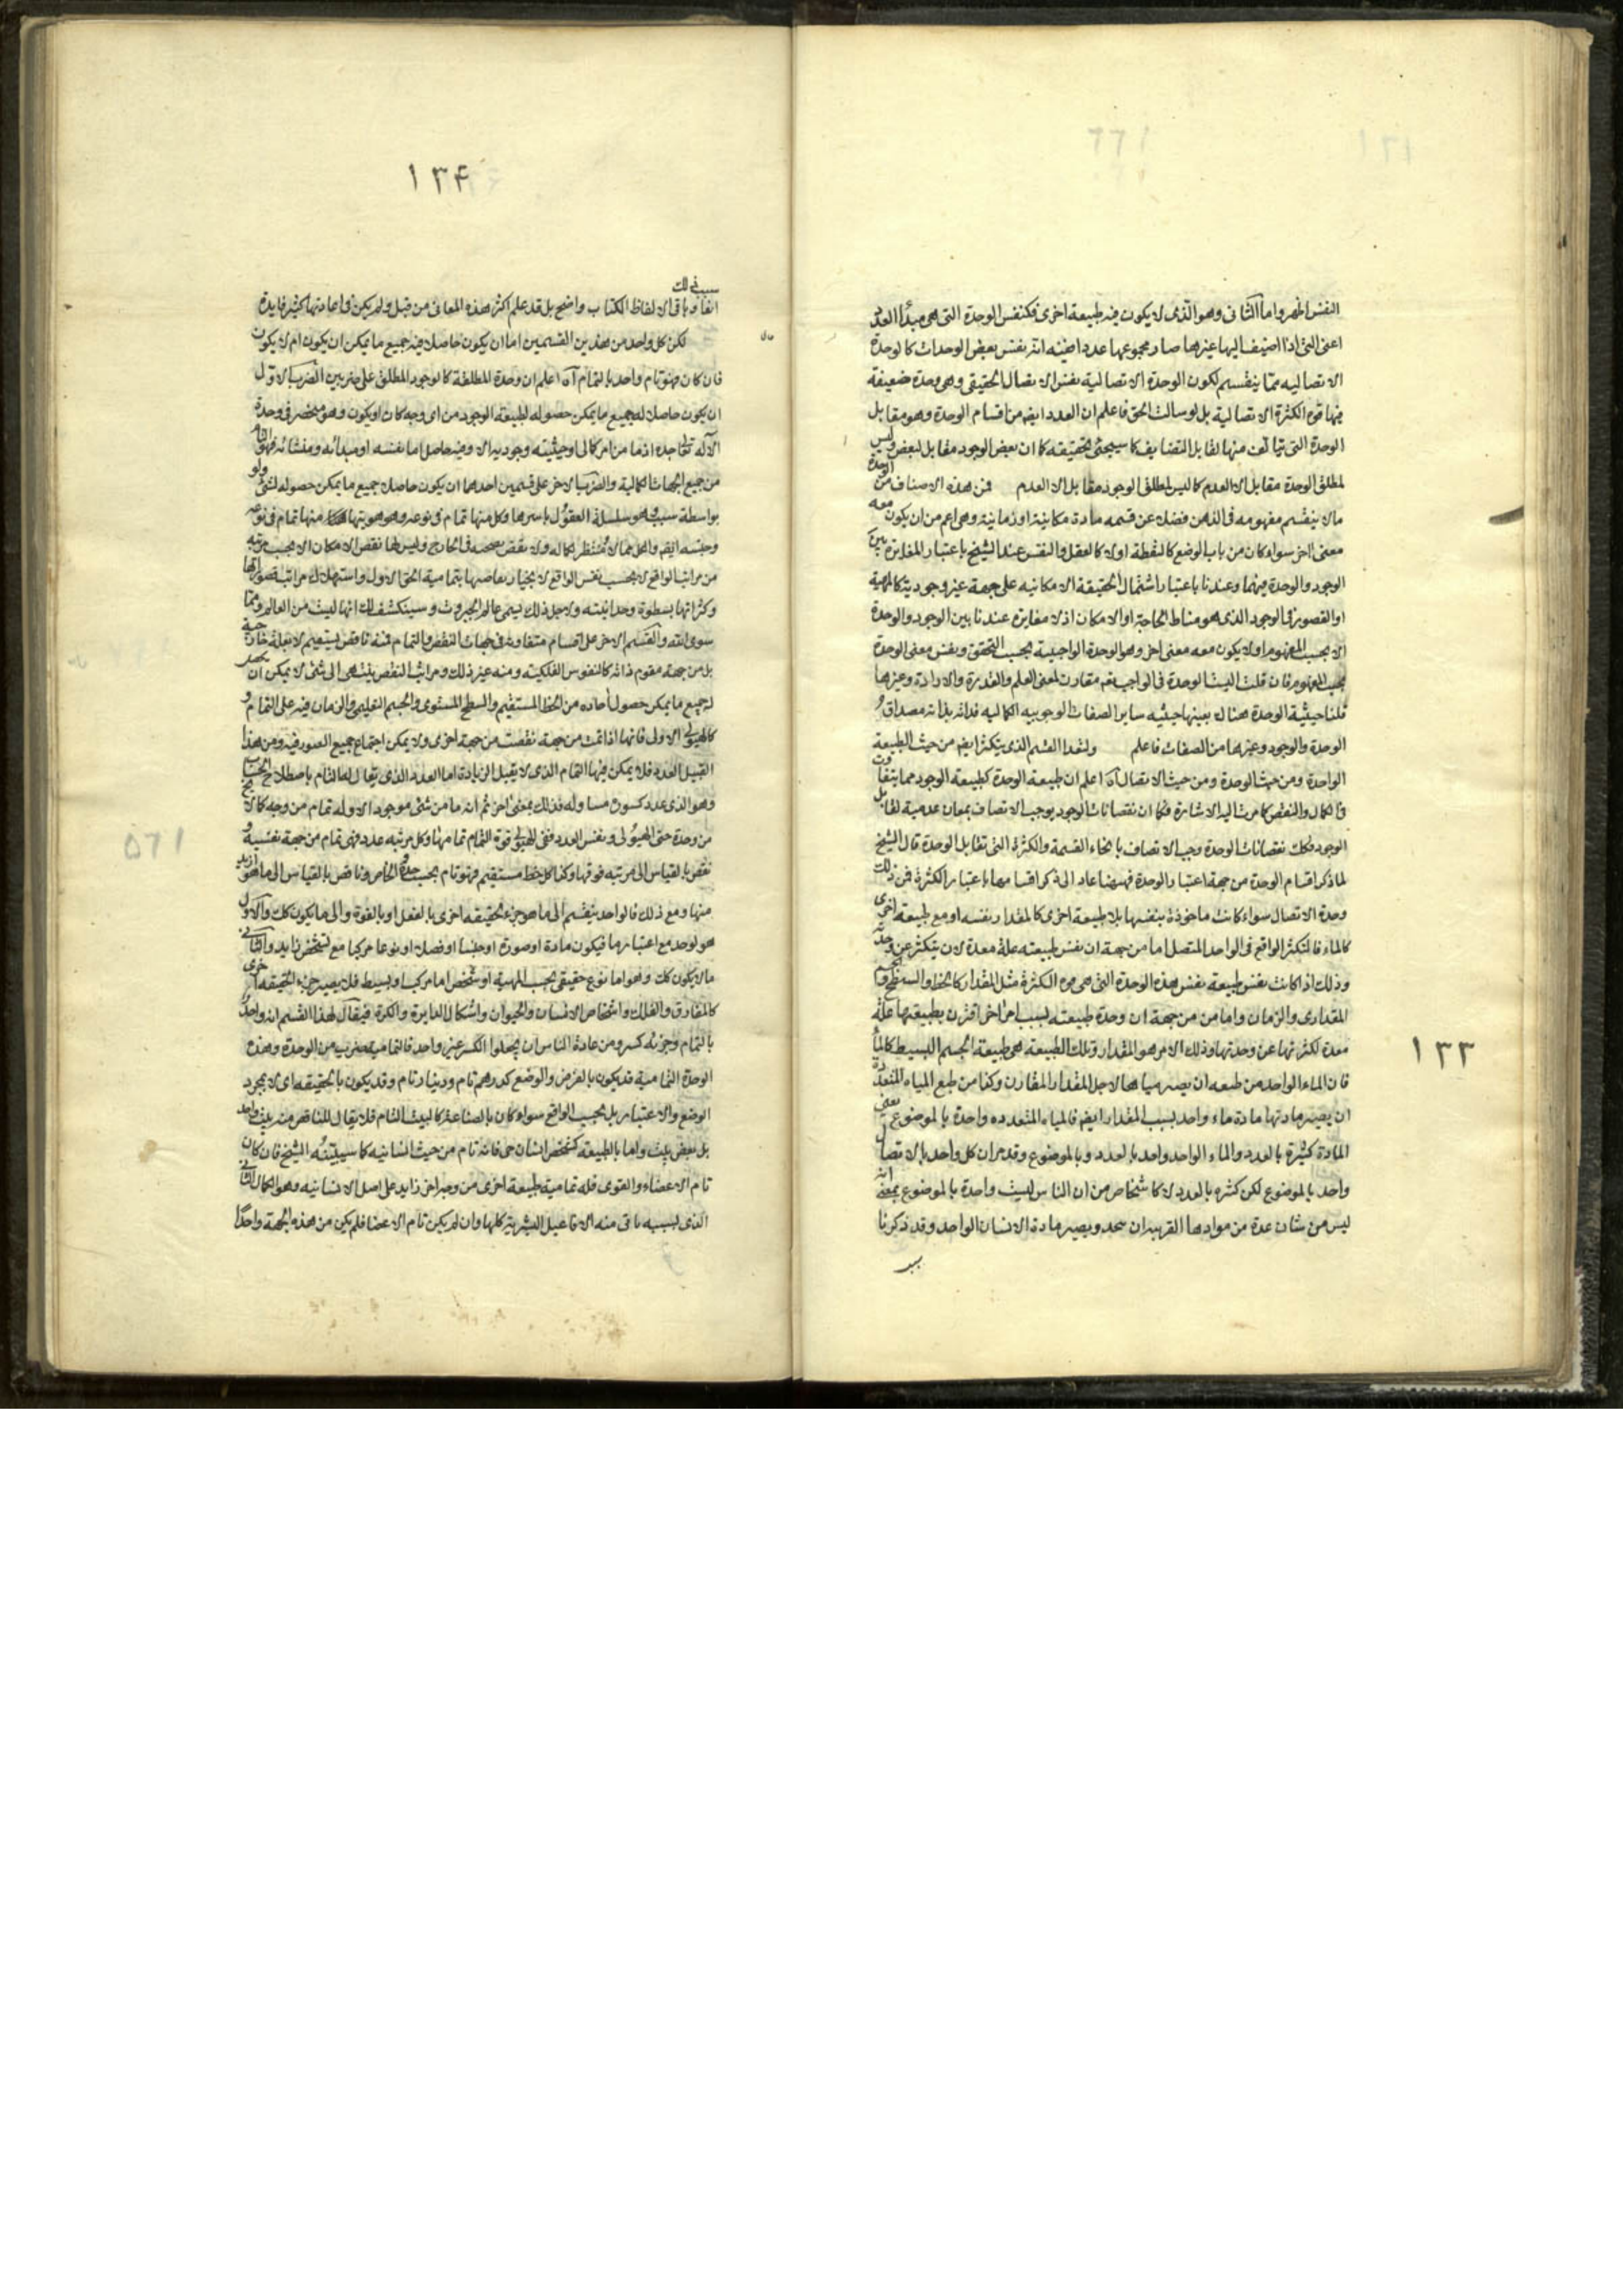 النفس اظهر واما الثانى وهو الذى لا يكون فيه طبيعة اخرى فكنفس الوحدة التى هى مبدأ العدد
اعنى التى اذا اضيف اليها غيرها صار مجموعها عددا فيه نفس بعض الوحدات كالوحدة
الاتصاليه مما ينقسم لكون الوحدة الاتصالية نفس الاتصال الحقيقى وهى وحدة ضعيفة
فيها قوه الكثرة الاتصالية بل لو سالت الحق فاعلم ان العدد ايضا من اقسام الوحدة وهو مقابل
الوحدة التى يتالف منها تقابل التضايف كما سيجئ تحقيقه كما ان بعض الوجود مقابل لبعض وليس
لمطلق الوحدة مقابل الا العدم كما ليس لمطلق الوجود مقابل الا العدم فمن هذه الاصناف من الوحدة
مالا ينقسم مفهومه فى الذهن فضلا عن قسمه مادة مكانية او زمانية وهى اعم من ان يكون معه
معنى اخر سواء كان من باب الوضع كالنقطة اولا كالعقل والنفس عند الشيخ باعتبار المغايرة بين
الوجود والوحدة فيهما وعندنا باعتبار اشتمال الحقيقة الامكانيه على جهة غير وجودية كالمهية
او القصور فى الوجود الذى هو مناط الحاجة او الامكان اذ لا مغايرة عندنا بين الوجود والوحدة
الا بحسب المفهوم او لا يكون معه معنى اخر وهو الوحدة الواجبية بحسب التحقق ونفس معنى الوحدة
بحسب المفهوم فان قلت اليست الوحدة فى الواجب مقارنة لمعنى العلم والقدرة والارادة وغيرها
قلنا حيثية الوحدة هناك بعينها حيثيه ساير الصفات الوجوبيه الكماليه فذاته بذاته مصداق
الوحدة والوجود وغيرهما من الصفات فاعلم ولنعد القسم الذى يتكثر ايضا من حيث الطبيعة
الواحدة ومن حيث الوحدة ومن حيث الاتصال آه اعلم ان طبيعة الوحدة كطبيعة الوجود مما يتفاوت
فى الكمال والنقص كما مرت اليه الاشارة فكما ان نقصانات الوجود يوجب الاتصاف بمعان عدمية تقابل
الوجود فكك نقصانات الوحدة وجب الاتصاف بانحاء القسمة والكثرة التى تقابل الوحدة قال الشيخ
لما ذكر اقسام الوحدة من جهة اعتبار الوحدة فههنا عاد الى ذكر اقسامها باعتبار الكثرة فمن ذلك
وحدة الاتصال سواء كانت ماخوذة بنفسها بلا طبيعة اخرى كالمقدار نفسه او مع طبيعة اخرى
كالماء فالتكثر الواقع فى الواحد المتصل اما من جهة ان نفس طبيعته علة معدة لان يتكثر عن وحدته
وذلك اذا كانت نفس طبيعة نفس هذه الوحدة التى هى قوه الكثرة مثل المقدار كالخط والسطح والجسم
المقدارى والزمان واما من جهة ان وحدة طبيعته لسبب امر اخر اقترن بطبيعتها علة
معدة لكثرتها عن وحدتها وذلك الامر هو المقدار وتلك الطبيعة هى طبيعة الجسم البسيط كالماء
فان الماء الواحد من طبعه ان يصير مياها لاجل المقدار المقارن وكذا من طبع المياه المتعددة
ان يصير مادتها مادة ماء واحد بسبب المقدار ايضا فالمياه المتعدده واحدة بالموضوع يعنى
المادة كثيرة بالعدد والماء الواحد واحد بالعدد وبالموضوع وقد مر ان كل واحد بالاتصال
واحد بالموضوع لكن كثره بالعدد لا كاشخاص من ان الناس ليست واحدة بالموضوع بمعنى انه
ليس من شان عدة من موادها القريبه ان تتحد ويصير مادة الانسان الواحد وقد ذكرنا
١٣٣
١٣۴
سبب ذلك
انفا وباقى الالفاظ الكتاب واضح بل قد علم اكثر هذه المعانى من قبل ولم يكن فى اعادتها كثير فايدة
لكن كل واحد من هذين القسمين اما ان يكون حاصلا فيه جميع ما يمكن ان يكون ام لا يكون
فان كان فهو تام واحد بالتمام آه اعلم ان وحدة المطلقة كالوجود المطلق على ضربين الضرب الاول
ان يكون حاصلا له جميع ما يمكن حصوله لطبيعة الوجود من اى وجه كان او يكون وهو منحصر فى وحدة
الاله تعالى جده اذ ما من امر كمالى او حيثيته وجوديه الا وفيه حاصل اما نفسه او مبدائه ومنشائه فهو التام
من جميع الجهات الكمالية والضرب الاخر على قسمين احدهما ان يكون حاصلا جميع ما يمكن حصوله لشئ ولو
بواسطة سببه وهو سلسلة العقول باسرها وكل منها تمام فى نوعه وهو هويتها منها تمام فى نوعه
وجنسه ايضا والكل مما لا تنتظر لكماله ولا نقص يصحبه فى الخارج وليس لها نقص الامكان الا بحسب مرتبه
من مراتب الواقع لا بحسب نفس الواقع لانجبار نقاصها بتمامية الحق الاول واستهلاك مراتب قصوراتها
وكثراتها بسطوة وحدانيته ولاجل ذلك يسمى عالم الجبروت وسينكشف لك انها ليست من العالم ومما
سوى الله والقسم الاخر على اقسام متفاوته فى جهات النقص والتمام فمنه ناقص يستتم لا بعلة خارجية
بل من جهة مقوم ذاته كالنفوس الفلكية ومنه غير ذلك ومراتب النقص ينتهى الى شئ لا يمكن ان يحصل
له جميع ما يمكن حصول احاده من الخط المستقيم والسطح المستوى والجسم التعليمى والزمان فيه على التمام و
كالهيولى الاولى فانها اذا تمت من جهة نقصت من جهة اخرى ولا يمكن اجتماع جميع الصور فيه ومن هذا
القبيل العدد فلا يمكن فيها التمام الذى لا يقبل الزيادة اما العدد الذى يقال لها التام باصطلاح الحساب
وهو الذى عدد كسوره مساو له فذلك بمعنى اخر ثم انه ما من شئ موجود الا وله تمام من وجه كمالا
من وحدة حتى الهيولى ونفس العدد ففى الهيولى قوة التمام تمامها وكل مرتبه عدد فهى تمام من جهة نفسية و
نقص بالقياس الى مرتبه فوقها وكذا كل خط مستقيم فهو تام بحسب حده الخاص وناقص بالقياس الى ما هو ازيد
منها ومع ذلك فالواحد ينقسم الى ما هو جزء لحقيقه اخرى بالفعل او بالقوة والى ما يكون كك والاول
هو لوحد مع اعتبارها فيكون مادة او صورة او جنسا او فصلا او نوعا مركبا مع تشخص زايد والثانى
ما لا يكون كك وهو اما نوع حقيقى بحسب المهية او شخص اما مركب او بسيط فلا يصير جزء لحقيقه اخرى
كالمفارق والفلك واشخاص الانسان والحيوان واشكال الدايرة والكرة فيقال لهذا القسم انه واحد
بالتمام وجزئه كسر ومن عادة الناس ان يجعلوا الكسر غير واحد فالتمامية ضرب من الوحدة وهذه
الوحدة التمامية قد يكون بالفرض والوضع كدرهم تام ودينار تام وقد يكون بالحقيقه اى لا بمجرد
الوضع والاعتبار بل بحسب الواقع سواء كان بالصناعة كالبيت التام فلا يقال للناقص منه بيت واحد
بل بعض بيت واما بالطبيعة كشخص انسان حى فانه تام من حيث انسانيه كما سيبينه الشيخ فان كان
تام الاعضاء والقوى فله تمامية طبيعة اخرى من وجه اخر زايد على اصل الانسانيه وهو الكمال الثانى
الذى بسببه ياتى منه الافاعيل البشرية كلها وان لم يكن تام الاعضا فلم يكن من هذه الجهة واحدا